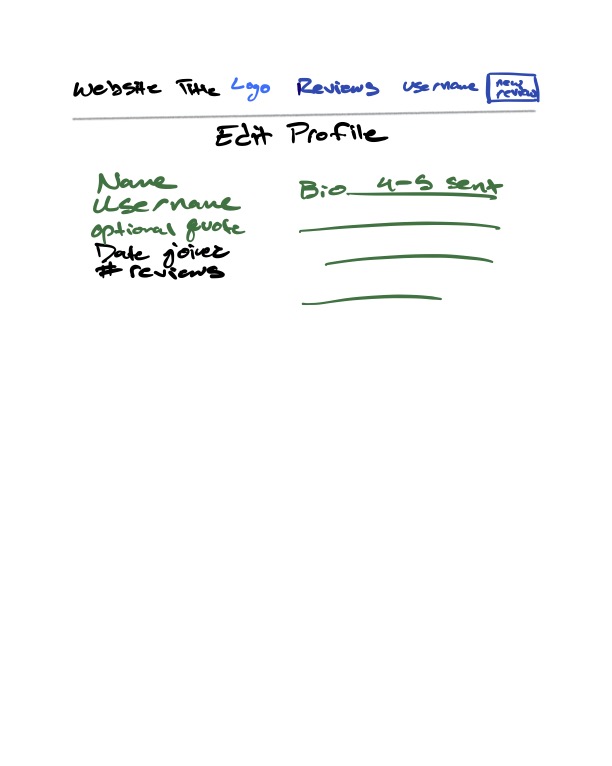 Website Title Logo Reviews username new review
Edit Profile
Name
Username
optional quote
Date joined
# reviews
Bio 4-5 sent